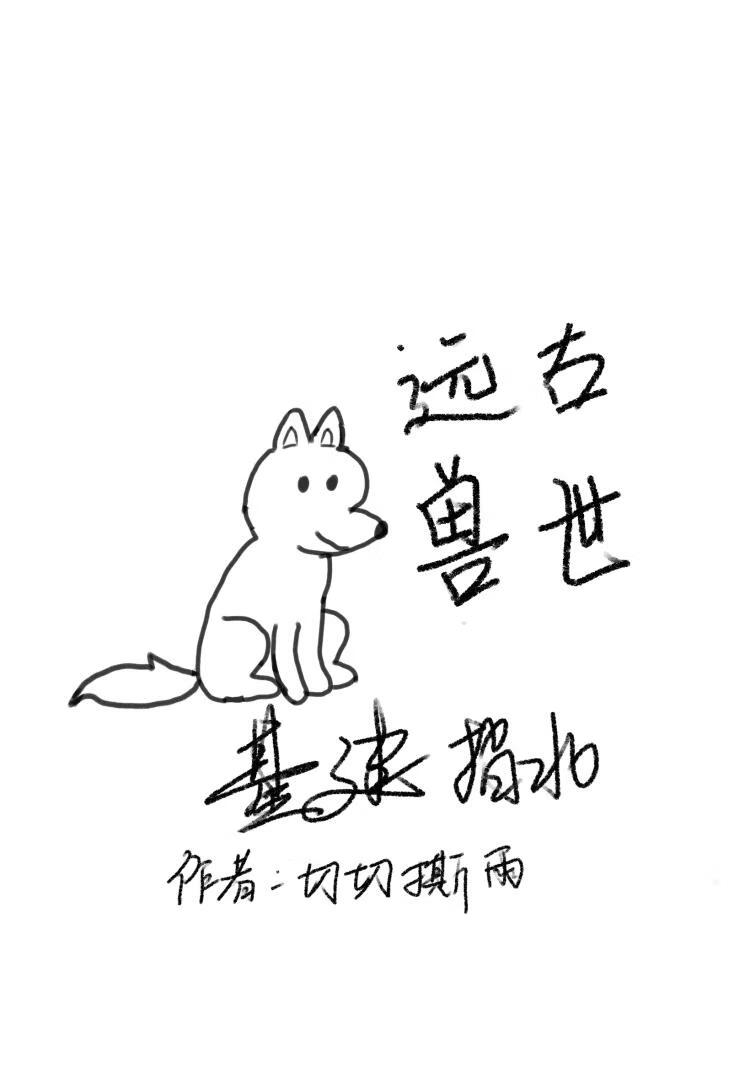 远古
兽世
基建指北
作者：切切撕雨